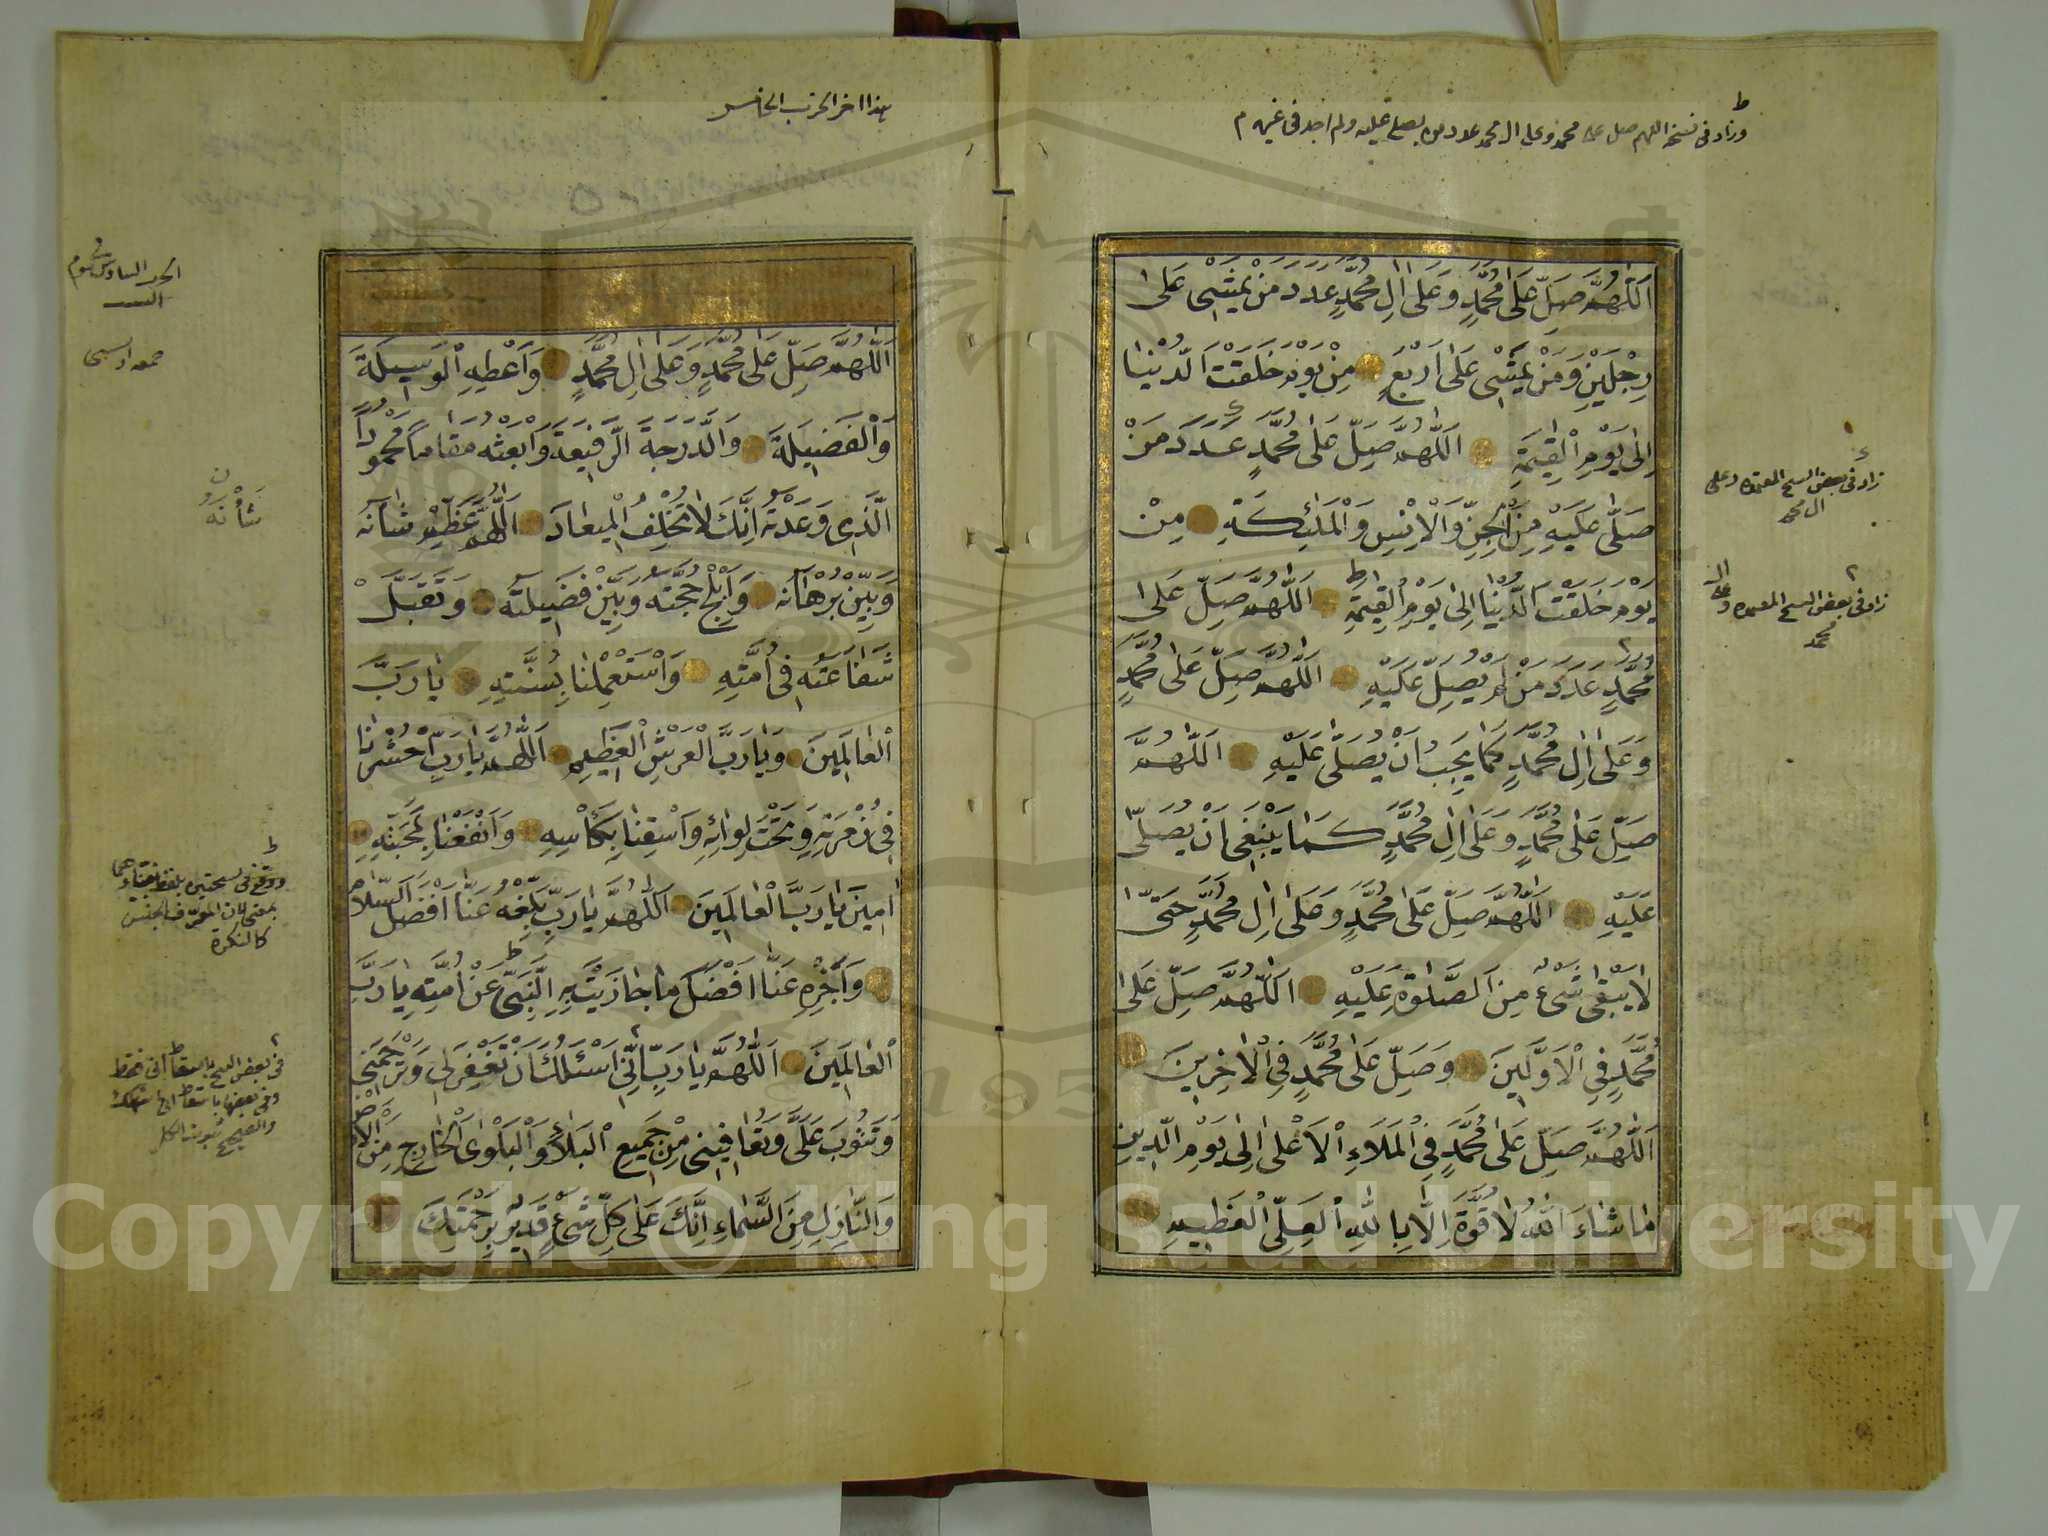 وزاد في نسخة اللهم صل على محمد وعلى ال محمد عدد من يصلي عليه ولم اجد في غيره م
اَللّٰهُمَّ صَلِّ عَلٰى مُحَمَّدٍ وَعَلٰى اٰلِ مُحَمَّدٍ عَدَدَ مَنْ يَمْشِى عَلٰى
رِجْلَيْنِ وَمَنْ يَمْشِى عَلٰى اَرْبَعٍ مِنْ يَوْمِ خَلَقْتَ الدُّنْيَا
اِلٰى يَوْمِ الْقِيٰمَةِ اَللّٰهُمَّ صَلِّ عَلٰى مُحَمَّدٍ عَدَدَ مَنْ
صَلّٰى عَلَيْهِ مِنَ الْجِنِّ وَالْاِنْسِ وَالْمَلٰئِكَةِ مِنْ
يَوْمِ خَلَقْتَ الدُّنْيَا اِلٰى يَوْمِ الْقِيٰمَةِ اَللّٰهُمَّ صَلِّ عَلٰى
مُحَمَّدٍ عَدَدَ مَنْ لَمْ يُصَلِّ عَلَيْهِ اَللّٰهُمَّ صَلِّ عَلٰى مُحَمَّدٍ
وَعَلٰى اٰلِ مُحَمَّدٍ كَمَا يَجِبُ اَنْ يُصَلّٰى عَلَيْهِ اَللّٰهُمَّ
صَلِّ عَلٰى مُحَمَّدٍ وَعَلٰى اٰلِ مُحَمَّدٍ كَمَا يَنْبَغِى اَنْ يُصَلّٰى
عَلَيْهِ اَللّٰهُمَّ صَلِّ عَلٰى مُحَمَّدٍ وَعَلٰى اٰلِ مُحَمَّدٍ حَتّٰى
لَا يَبْقٰى شَىْءٌ مِنَ الصَّلٰوةِ عَلَيْهِ اَللّٰهُمَّ صَلِّ عَلٰى
مُحَمَّدٍ فِى الْاَوَّلِينَ وَصَلِّ عَلٰى مُحَمَّدٍ فِى الْاٰخِرِينَ
اَللّٰهُمَّ صَلِّ عَلٰى مُحَمَّدٍ فِى الْمَلَاءِ الْاَعْلٰى اِلٰى يَوْمِ الدِّينِ
مَا شَاءَ اللّٰهُ لَا قُوَّةَ اِلَّا بِاللّٰهِ الْعَلِىِّ الْعَظِيمِ
زاد في بعض النسخ المعتمدة وعلى
ال محمد
زاد في بعض النسخ المعتمدة وعلى ال
محمد
هذا اخر الحزب الخامس
اَللّٰهُمَّ صَلِّ عَلٰى مُحَمَّدٍ وَعَلٰى اٰلِ مُحَمَّدٍ وَاَعْطِهِ الْوَسِيلَةَ
وَالْفَضِيلَةَ وَالدَّرَجَةَ الرَّفِيعَةَ وَابْعَثْهُ مَقَامًا مَحْمُودًا
الَّذِى وَعَدْتَهُ اِنَّكَ لَا تُخْلِفُ الْمِيعَادَ اَللّٰهُمَّ عَظِّمْ شَأْنَهُ
وَبَيِّنْ بُرْهَانَهُ وَاَبْلِجْ حُجَّتَهُ وَبَيِّنْ فَضِيلَتَهُ وَتَقَبَّلْ
شَفَاعَتَهُ فِى اُمَّتِهِ وَاسْتَعْمِلْنَا بِسُنَّتِهِ يَا رَبَّ
الْعَالَمِينَ وَيَا رَبَّ الْعَرْشِ الْعَظِيمِ اَللّٰهُمَّ يَا رَبِّ احْشُرْنَا
فِى زُمْرَتِهِ وَتَحْتَ لِوَائِهِ وَاسْقِنَا بِكَأْسِهِ وَانْفَعْنَا بِمَحَبَّتِهِ
اٰمِينَ يَا رَبَّ الْعَالَمِينَ اَللّٰهُمَّ يَا رَبِّ بَلِّغْهُ عَنَّا اَفْضَلَ السَّلَامِ
وَاجْزِهِ عَنَّا اَفْضَلَ مَا جَازَيْتَ بِهِ النَّبِىَّ عَنْ اُمَّتِهِ يَا رَبَّ
الْعَالَمِينَ اَللّٰهُمَّ يَا رَبِّ اِنِّى اَسْئَلُكَ اَنْ تَغْفِرَ لِى وَتَرْحَمَنِى
وَتَتُوبَ عَلَىَّ وَتُعَافِيَنِى مِنْ جَمِيعِ الْبَلَاءِ وَالْبَلْوَاءِ الْخَارِجِ مِنَ الْاَرْضِ
وَالنَّازِلِ مِنَ السَّمَاءِ اِنَّكَ عَلٰى كُلِّ شَىْءٍ قَدِيرٌ بِرَحْمَتِكَ
الحزب السادس في يوم
السبت
شَأْنَهُ
بمعنى لان المعرف بالجنس
كالنكرة
في بعض النسخ باسقاط اني فقط
وفي بعضها باسقاط اني اسئلك
والصحيح ثبوت الكل
1957
Copyright © King Saud University